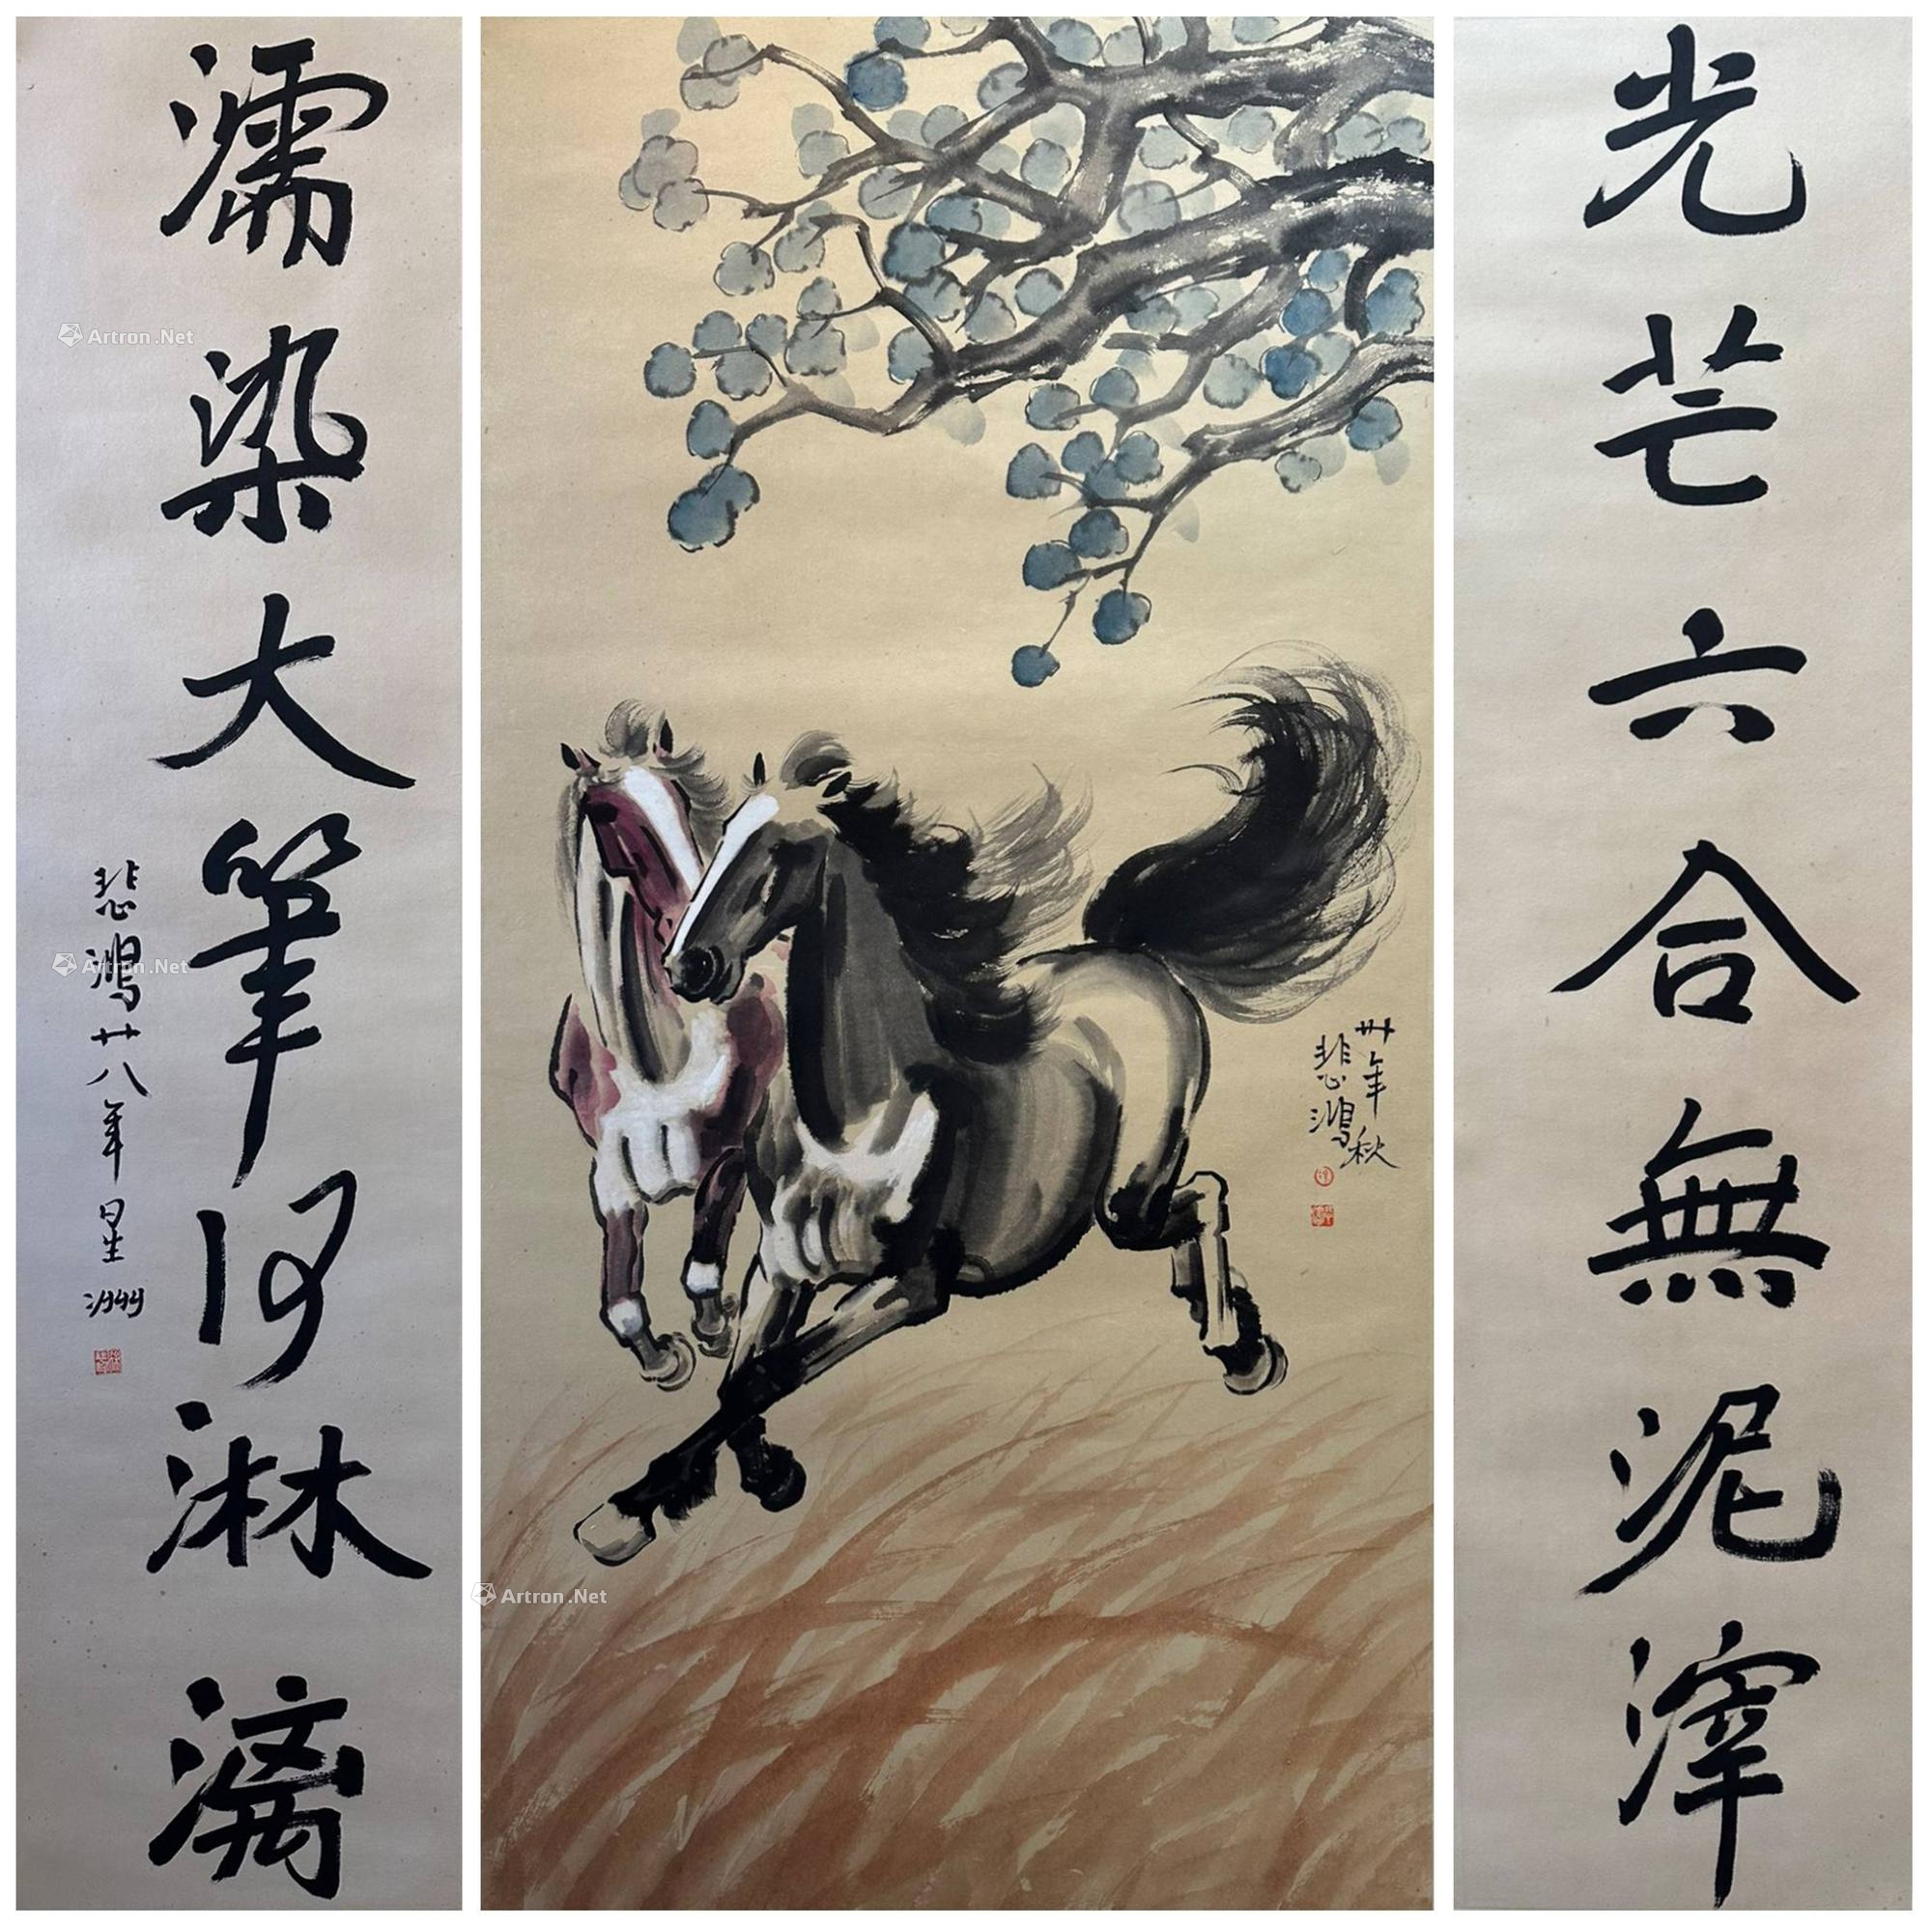 光芒六合無泥滓
卅年秋
悲鴻
濡染大筆何淋漓
悲鴻廿八年星洲
Artron.Net
Artron.Net
Artron.Net